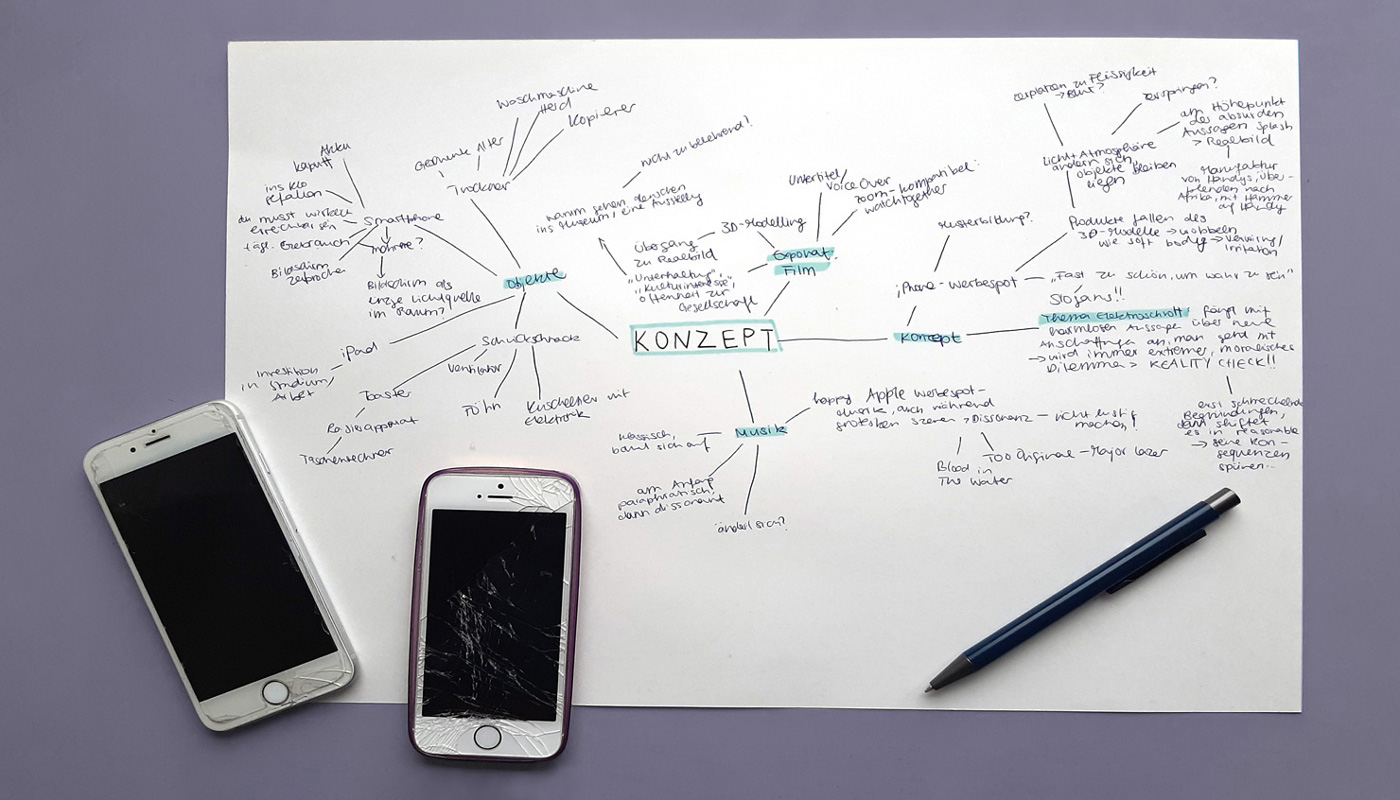 Waschmaschine
Herd
Kopierer
Geschenke Alter
Trockner
Akku
kaputt
ins Klo
gefallen
du musst wirklich
erreichbar sein
tägl. Gebrauch
Bildschirm
zerbrochen
Smartphone
mehrere?
Bildschirm als
einzge Lichtquelle
im Raum?
Objekte
iPad
Investition
in Studium/
Arbeit
Schnickschnack
Ventilator
Toaster
Radioapparat
Taschenrechner
Föhn
Kuscheltier mit
Elektronik
nicht zu belehrend!
warum gehen Menschen
ins Museum/eine Ausstellg
Übergang
zu Realbild
3D-Modelling
"Unterhaltung",
"Kulturinteresse",
Offenheit zur
Gesellschaft
Untertitel/
Voice Over
zoom-kompatibel:
watchtogether
Exponat:
Film
KONZEPT
Musik
klassisch,
baut sich auf
am Anfang
paraphratisch,
dann dissonant
ändert sich?
happy Apple Werbespot-
musik, auch während
grotesken Szenen > Dissonanz – nicht lustig
machen!
Blood in
The Water
Too Original – Major Lazer
Konzept
iPhone-Werbespot
Musterbildung?
"Fast zu schön, um wahr zu sein"
Slogans!!
Thema Elektroschrott: fängt mit
harmlosen Aussage über neue
Anschaffungen an, man geht mit
→ wird immer extremer, moralisches
Dilemma > REALITY CHECK!!
erst schmeichelnde
Begründungen,
dann shiftet
es in reasonable
→ seine Kon-
sequenzen
spüren..
Produkte fallen des
3D-Modelle → wobbeln
wie soft body → Verwirrg/
Irritation
Licht + Atmosphäre
ändern sich,
Objekte bleiben
liegen
zerplatzen zu Flüssigkeit
→ Blut?
zerspringen?
am Höhepunkt
des absurden
Aussagen Splash
> Realbild
Manufaktur
von Handys, über-
blenden nach
Afrika, mit Hammer
auf Handy